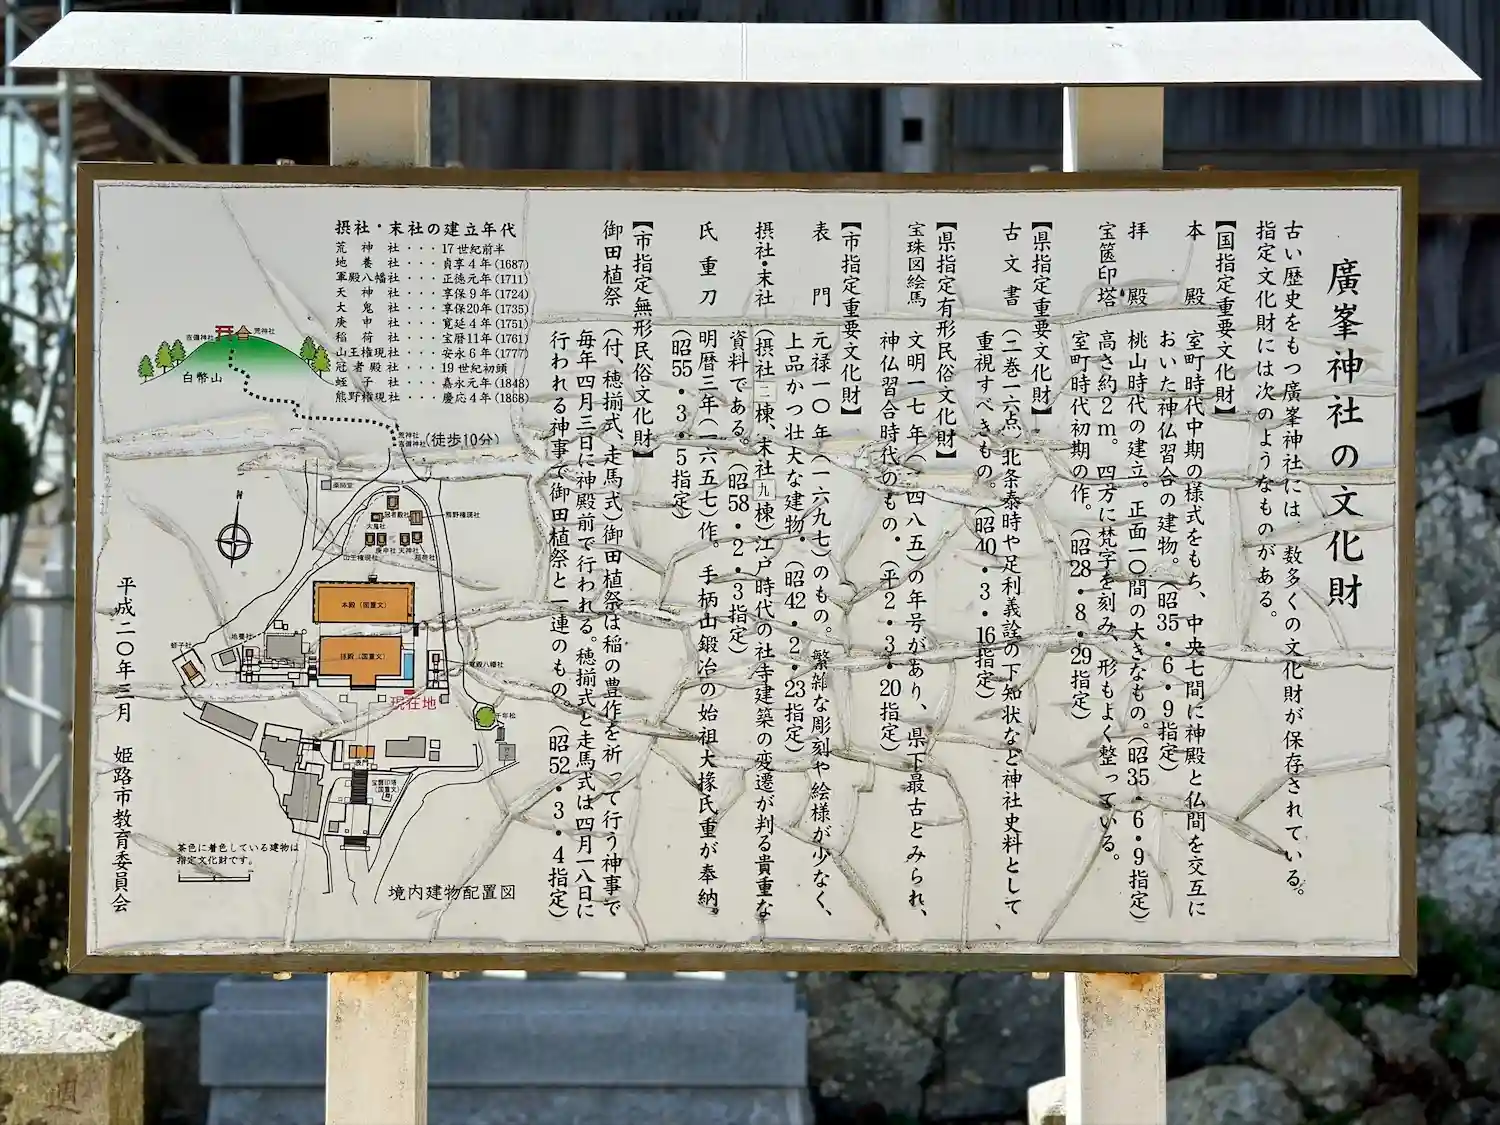 廣峯神社の文化財
古い歴史をもつ廣峯神社には、数多くの文化財が保存されている。
指定文化財には次のようなものがある。
【国指定重要文化財】
本殿 室町時代中期の様式をもち、中央七間に神殿と仏間を交互に
おいた神仏習合の建物。(昭35・6・9指定)
拝殿 桃山時代の建立。正面一〇間の大きなもの。(昭35・6・9指定)
宝篋印塔 高さ約2m。四方に梵字を刻み、形もよく整っている。
室町時代初期の作。(昭28・8・29指定)
【県指定重要文化財】
古文書 (二巻一六点)北条泰時や足利義詮の下知状など神社史料として
重視すべきもの。(昭40・3・16指定)
【県指定有形民俗文化財】
宝珠図絵馬 文明一七年(一四八五)の年号があり、県下最古とみられ、
神仏習合時代のもの。(平2・3・20指定)
【市指定重要文化財】
表門 元禄一〇年(一六九七)のもの。繁雑な彫刻や絵様が少なく、
上品かつ壮大な建物。(昭42・2・23指定)
摂社・末社 (摂社二棟、末社九棟)江戸時代の社寺建築の変遷が判る貴重な
資料である。(昭58・2・3指定)
氏重刀 明暦三年(一六五七)作。手柄山鍛冶の始祖大掾氏重が奉納。
(昭55・3・5指定)
【市指定無形民俗文化財】
御田植祭 (付、穂揃式、走馬式)御田植祭は稲の豊作を祈って行う神事で
毎年四月三日に神殿前で行われる。穂揃式と走馬式は四月一八日に
行われる神事で御田植祭と一連のもの。(昭52・3・4指定)
摂社・末社の建立年代
荒神社・・・17世紀前半
地養社・・・貞享4年(1687)
軍殿八幡社・・・正徳元年(1711)
天神社・・・享保9年(1724)
大鬼社・・・享保20年(1735)
庚申社・・・寛延4年(1751)
稲荷社・・・宝暦11年(1761)
山王権現社・・・安永6年(1777)
冠者殿社・・・19世紀初頭
蛭子社・・・嘉永元年(1848)
熊野権現社・・・慶応4年(1868)
吉備神社
荒神社
白幣山
荒神社
吉備神社
(徒歩10分)
薬師堂
冠者殿社
熊野権現社
大鬼社
庚申社
天神社
稲荷社
山王権現社
N
本殿(国重文)
拝殿(国重文)
地養社
蛭子社
軍殿八幡社
現在地
千年松
表門
宝篋印塔
(国重文)
茶色に着色している建物は
指定文化財です。
境内建物配置図
平成二〇年三月 姫路市教育委員会